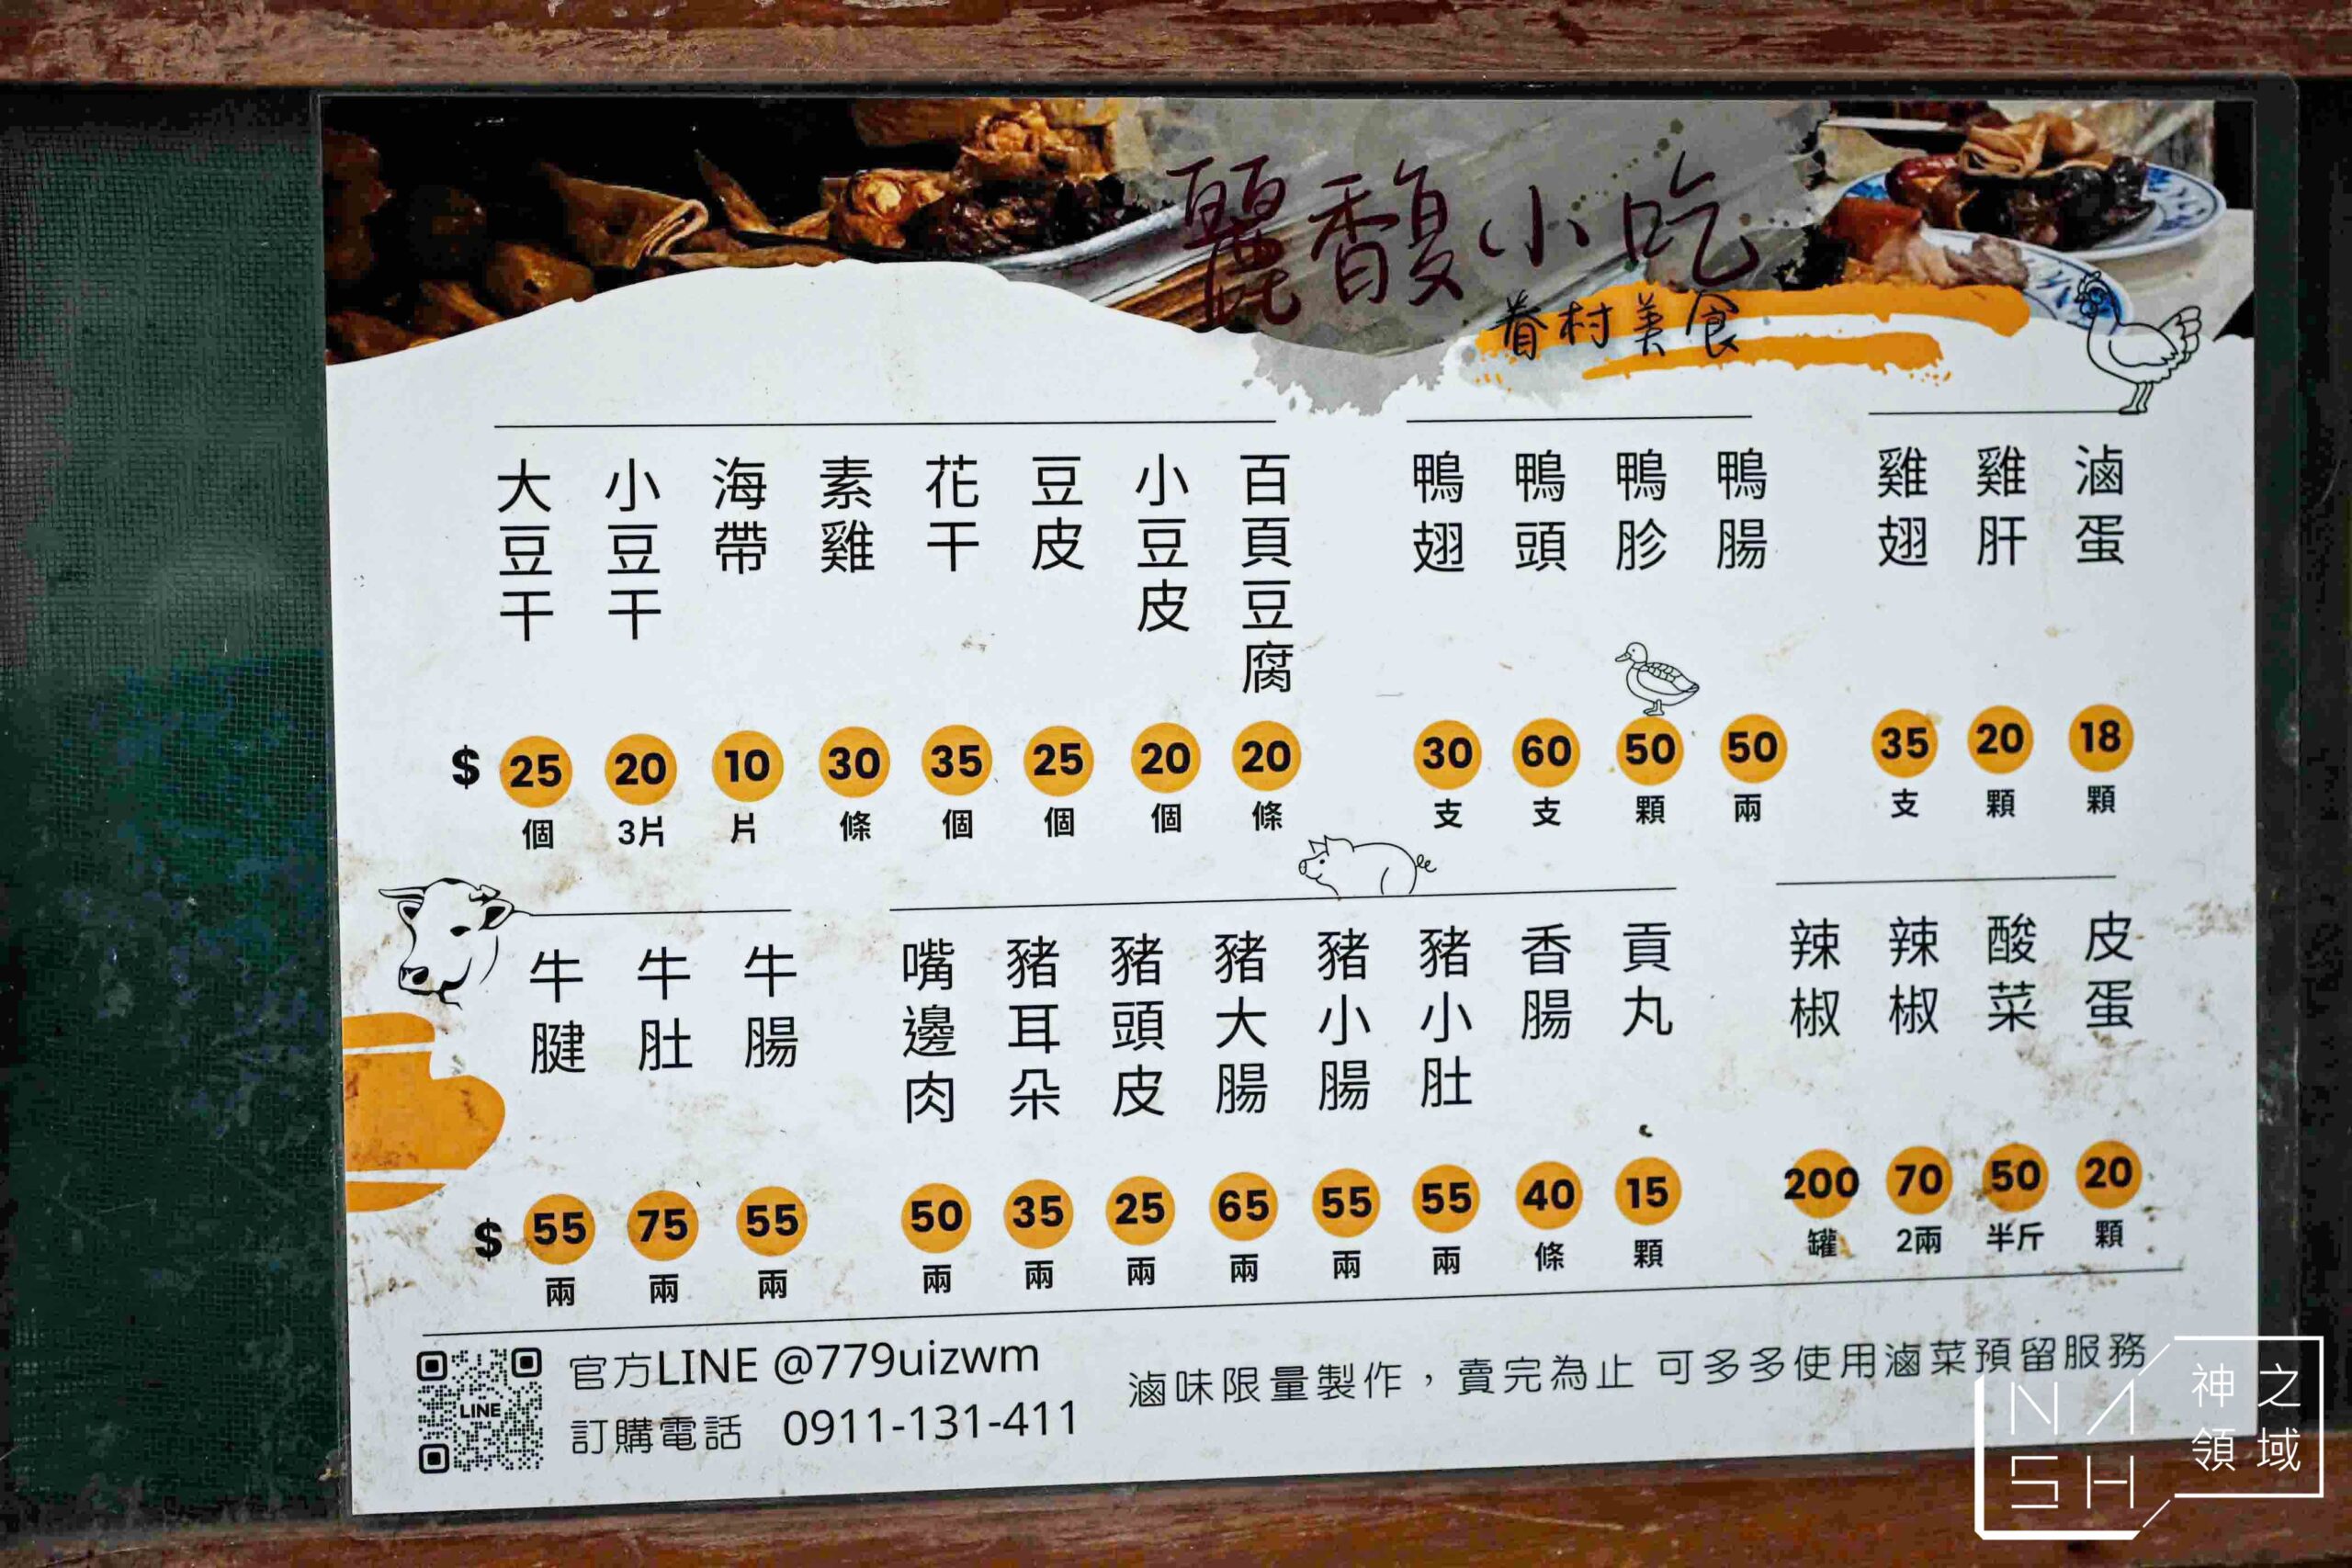 麗馥小吃
眷村美食
大豆干 小豆干 海帶 素雞 花干 豆皮 小豆皮 百頁豆腐 鴨翅 鴨頭 鴨胗 鴨腸 雞翅 雞肝 滷蛋
$ 25 20 10 30 35 25 20 20 30 60 50 50 35 20 18
個 3片 片 條 個 個 個 條 支 支 顆 兩 支 顆 顆
牛腱 牛肚 牛腸 嘴邊肉 豬耳朵 豬頭皮 豬大腸 豬小腸 豬小肚 香腸 貢丸 辣椒 辣椒 酸菜 皮蛋
$ 55 75 55 50 35 25 65 55 55 40 15 200 70 50 20
兩 兩 兩 兩 兩 兩 兩 兩 兩 條 顆 罐 2兩 半斤 顆
LINE
官方LINE @779uizwm
訂購電話 0911-131-411
滷味限量製作，賣完為止 可多多使用滷菜預留服務
NASH
神之
領域